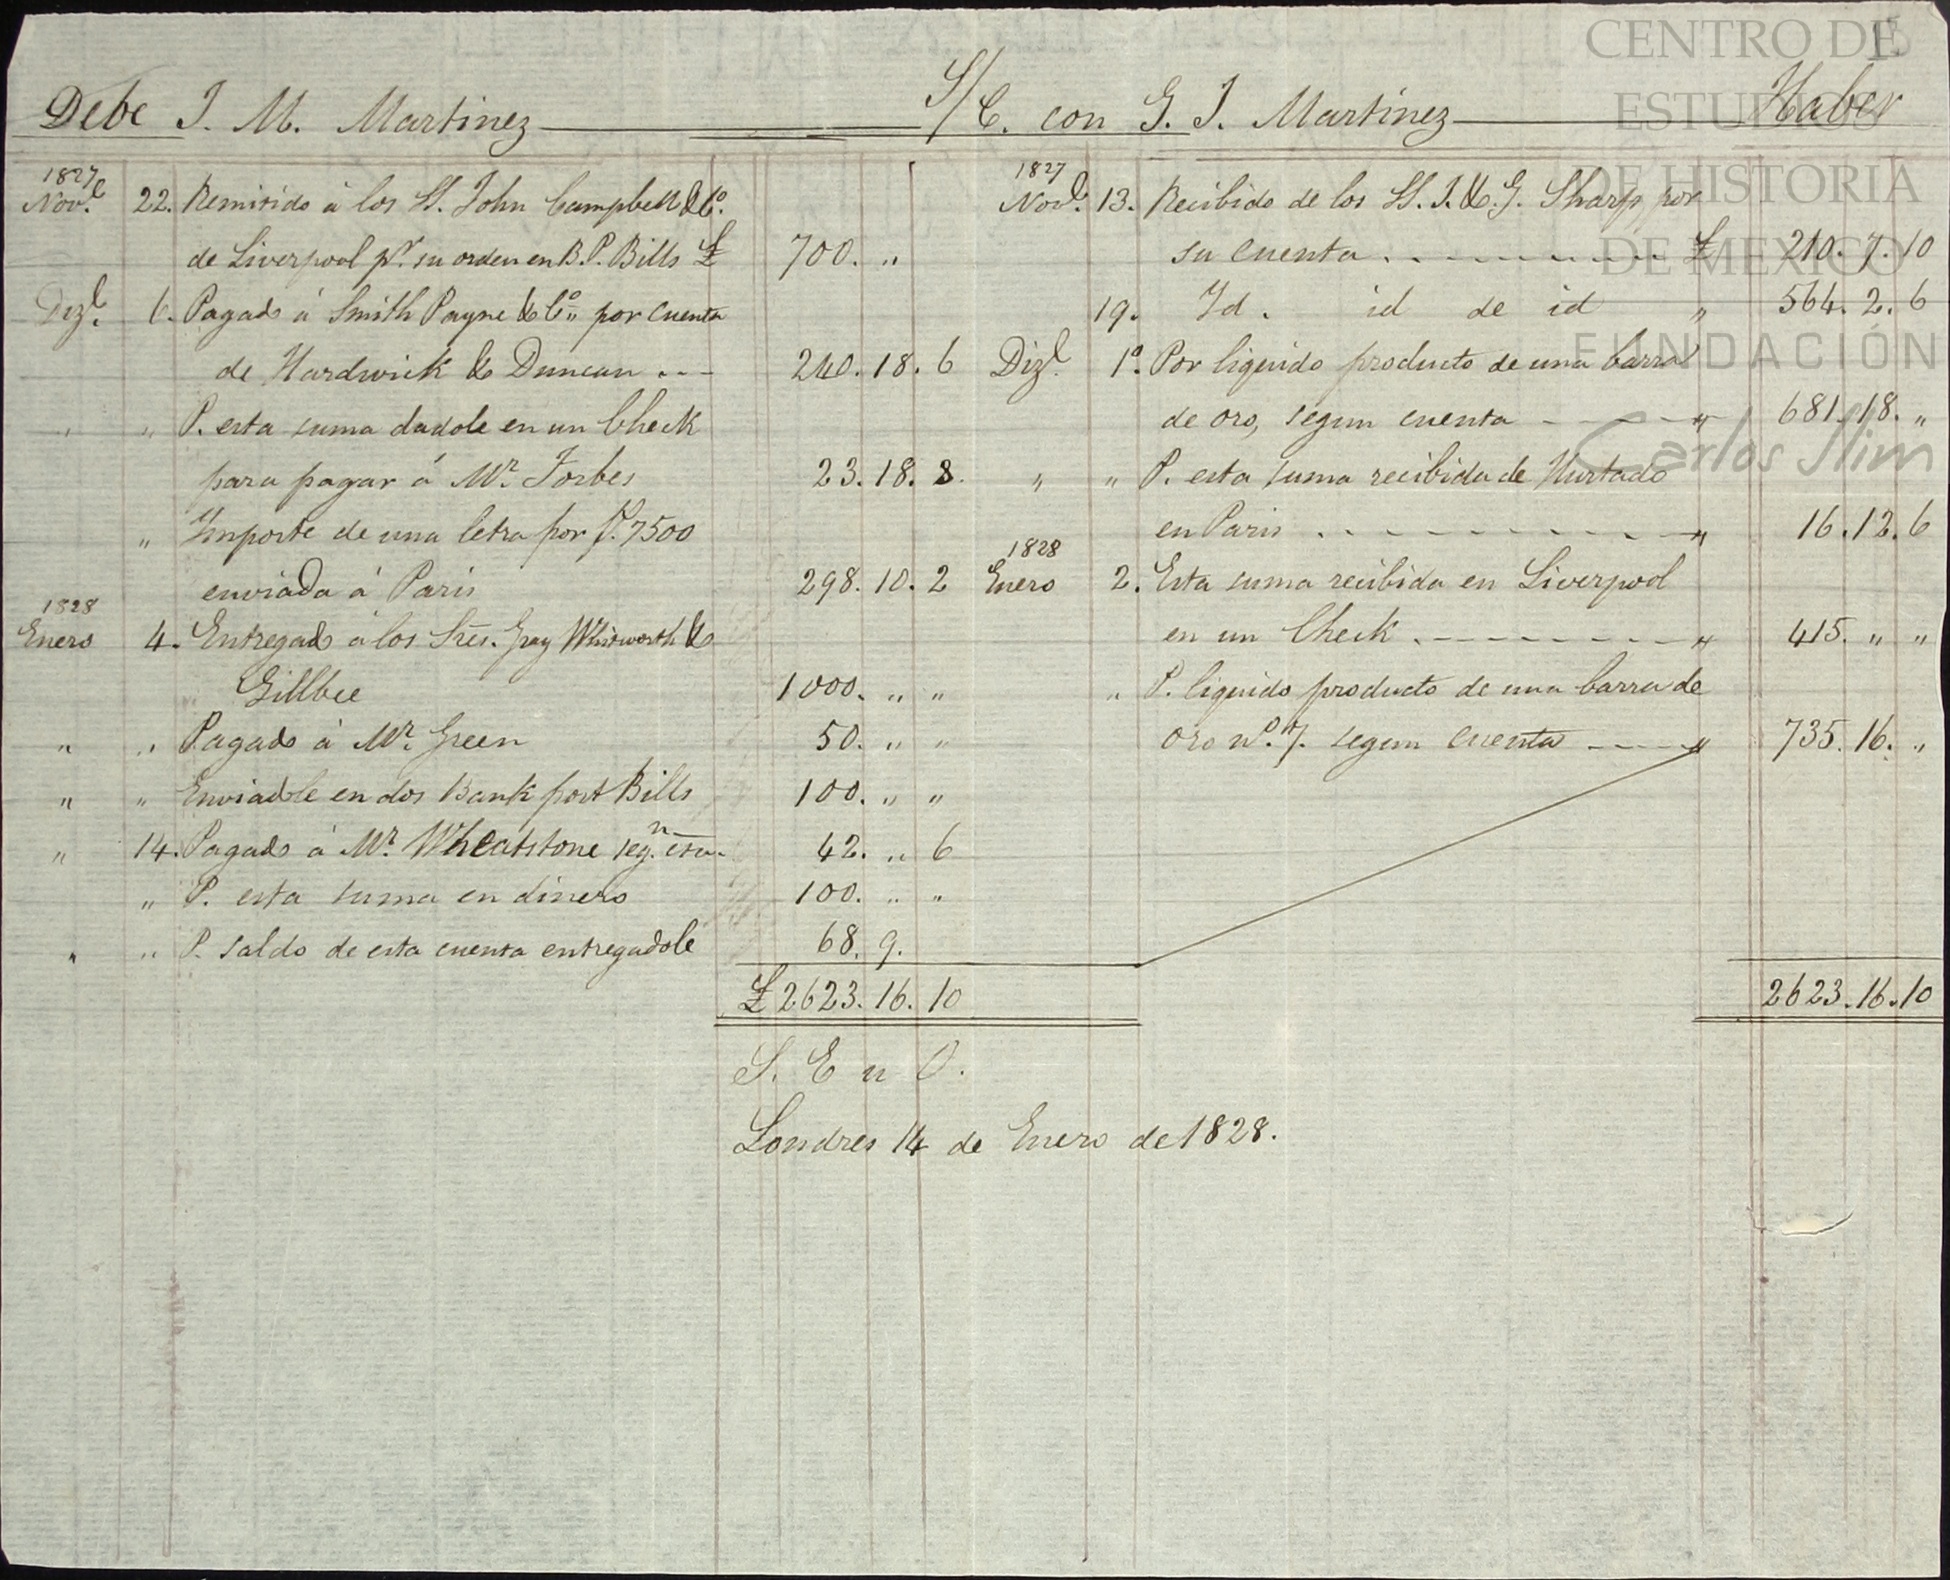 CENTRO DE
ESTUDIOS
DE HISTORIA
DE MEXICO
FUNDACIÓN
Carlos Slim
Debe J. M. Martinez S/C. con G. J. Martinez Haber
1827
Nov.e 22. Remitido á los SS. John Campbell & Co.
de Liverpool pr. su orden en B. P. Bills £ 700. "
Dize. 6. Pagado á Smith Payne & Co. por cuenta
de Hardwick & Duncan 240. 18. 6
" " P. esta suma dadole en un Check
para pagar á Mr. Forbes 23. 18. 8.
" Importe de una letra por f. 7500
enviada á Paris 298. 10. 2
1828
Enero 4. Entregado á los Sres. Gray Whitworth &
Gillbee 1000. " "
" " Pagado á Mr. Green 50. " "
" " Enviadole en dos Bank post Bills 100. " "
" 14. Pagado á Mr. Wheatstone segn. cta. 42. " 6
" P. esta suma en dinero 100. " "
" " P. saldo de esta cuenta entregadole 68. 9.
£ 2623. 16. 10
1827
Nove. 13. Recibido de los SS. J. & G. Sharp por
su cuenta £ 210. 7. 10
19. Id. id de id " 564. 2. 6
Dize. 1º. Por liquido producto de una barra
de oro, segun cuenta " 681. 18. "
" " P. esta suma recibida de Hurtado
en Paris " 16. 12. 6
1828
Enero 2. Esta suma recibida en Liverpool
en un Check " 415. " "
" P. liquido producto de una barra de
oro nº. 7. segun cuenta " 735. 16. "
2623. 16. 10
S. E u O.
Londres 14 de Enero de 1828.